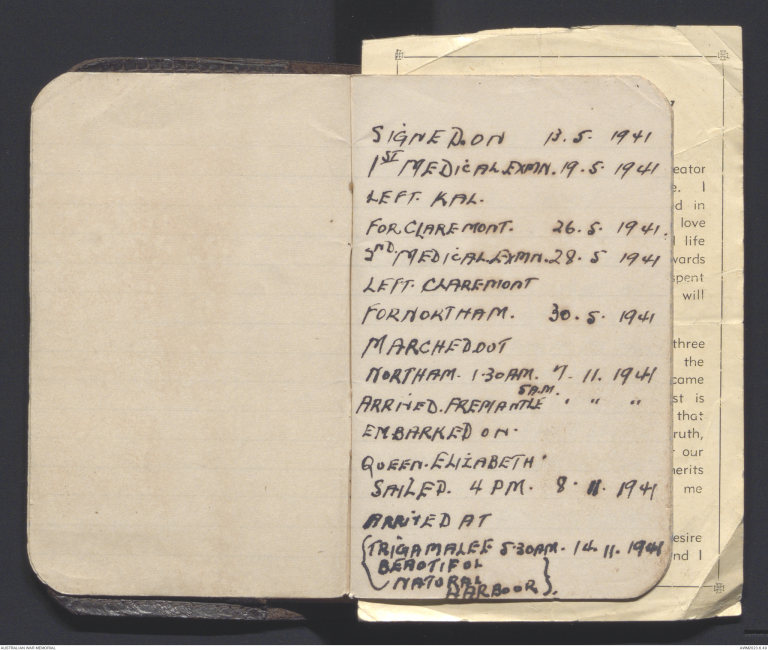 SIGNED.ON 13.5. 1941
1ST MEDICAL.EXMN. 19.5. 1941
LEFT. KAL.
FOR.CLAREMONT. 26.5. 1941.
2ND. MEDICAL.EXMN. 28.5 1941
LEFT. CLAREMONT
FOR NORTHAM. 30.5. 1941
MARCHED OUT
NORTHAM. 1.30AM. 7. 11. 1941
5 A.M.
ARRIVED. FREMANTLE " " "
EMBARKED ON.
QUEEN.ELIZABETH.
SAILED. 4 PM. 8. 11. 1941
ARRIVED AT
(TRIGAMALEE 5.30AM. 14. 11. 1941
BEAUTIFUL
NATURAL
HARBOUR).
eator
e. I
d in
love
life
wards
spent
will
three
the
came
st is
that
ruth,
our
erits
me
esire
nd I
AUSTRALIAN WAR MEMORIAL